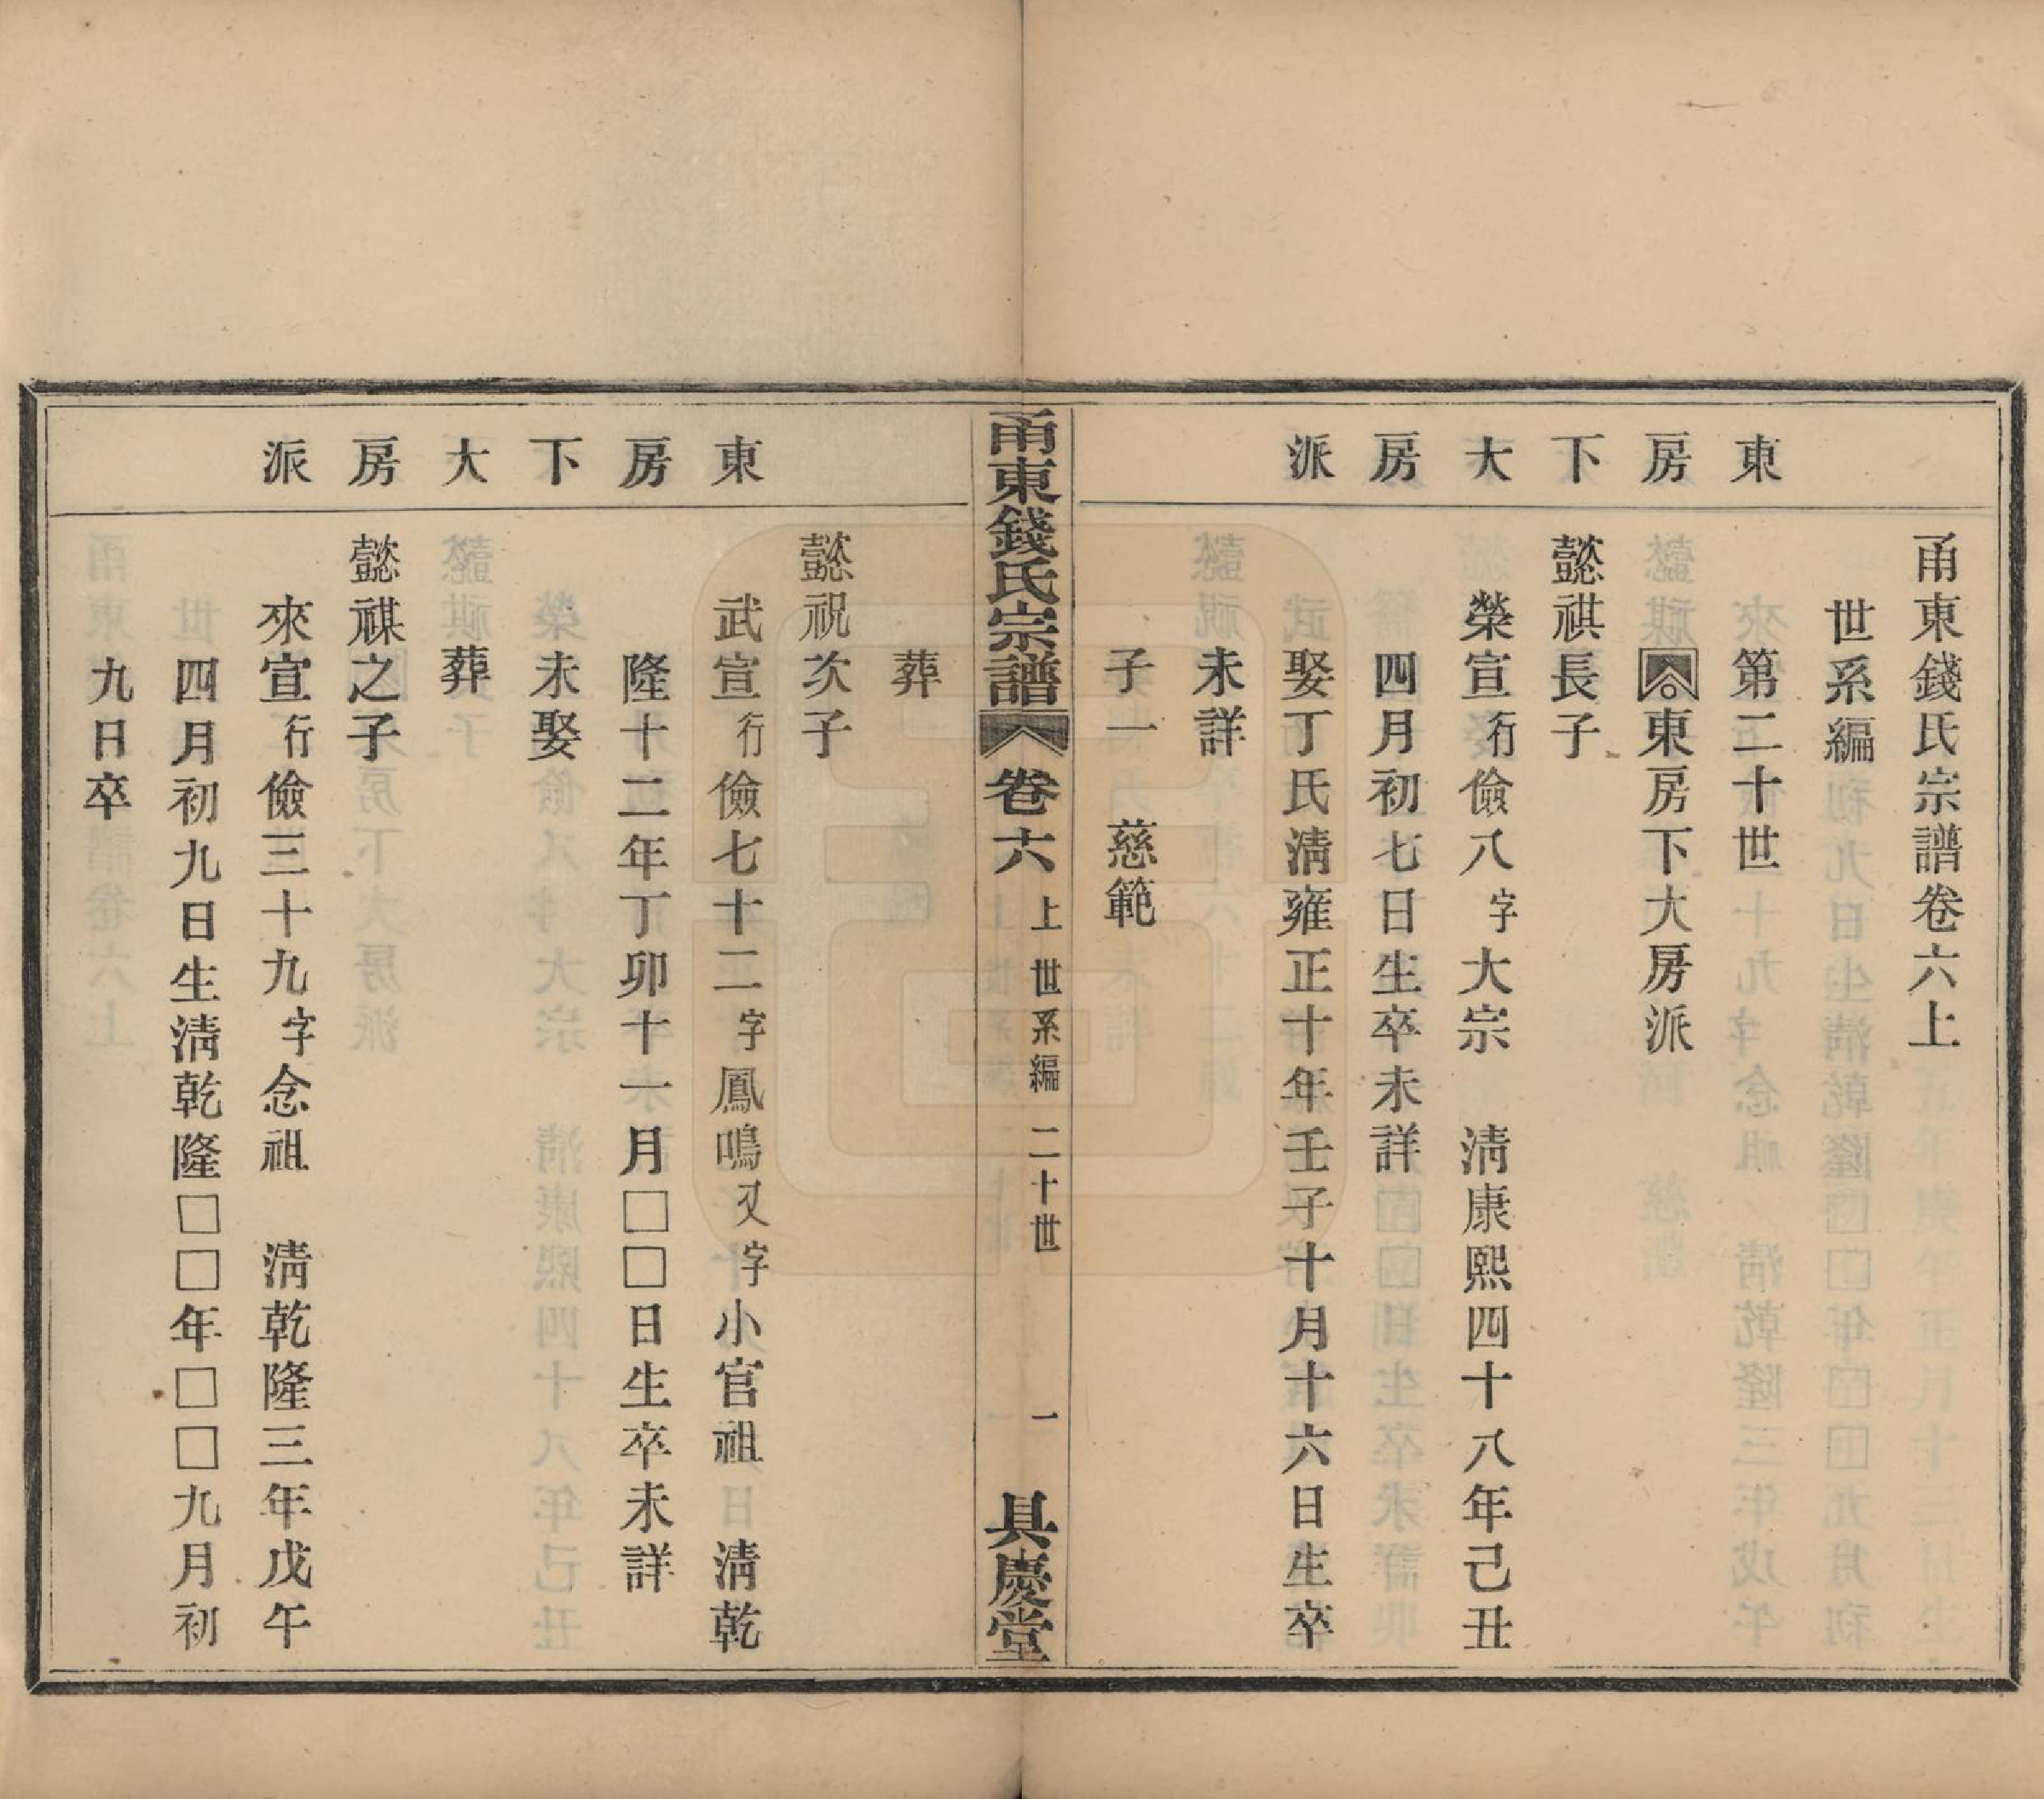 東房下大房派
甬東錢氏宗譜卷六上
世系編
第二十世
東房下大房派
懿祺長子
榮宣行儉八字大宗　清康熙四十八年己丑
四月初七日生卒未詳
娶丁氏清雍正十年壬子十月十六日生卒
未詳
子一　慈範
甬東錢氏宗譜　卷六上　世系編　二十世　一　具慶堂
東房下大房派
葬
懿祝次子
武宣行儉七十二字鳳鳴又字小官祖　清乾
隆十二年丁卯十一月□□日生卒未詳
未娶
葬
懿祺之子
來宣行儉三十九字念祖　清乾隆三年戊午
四月初九日生清乾隆□□年□□九月初
九日卒